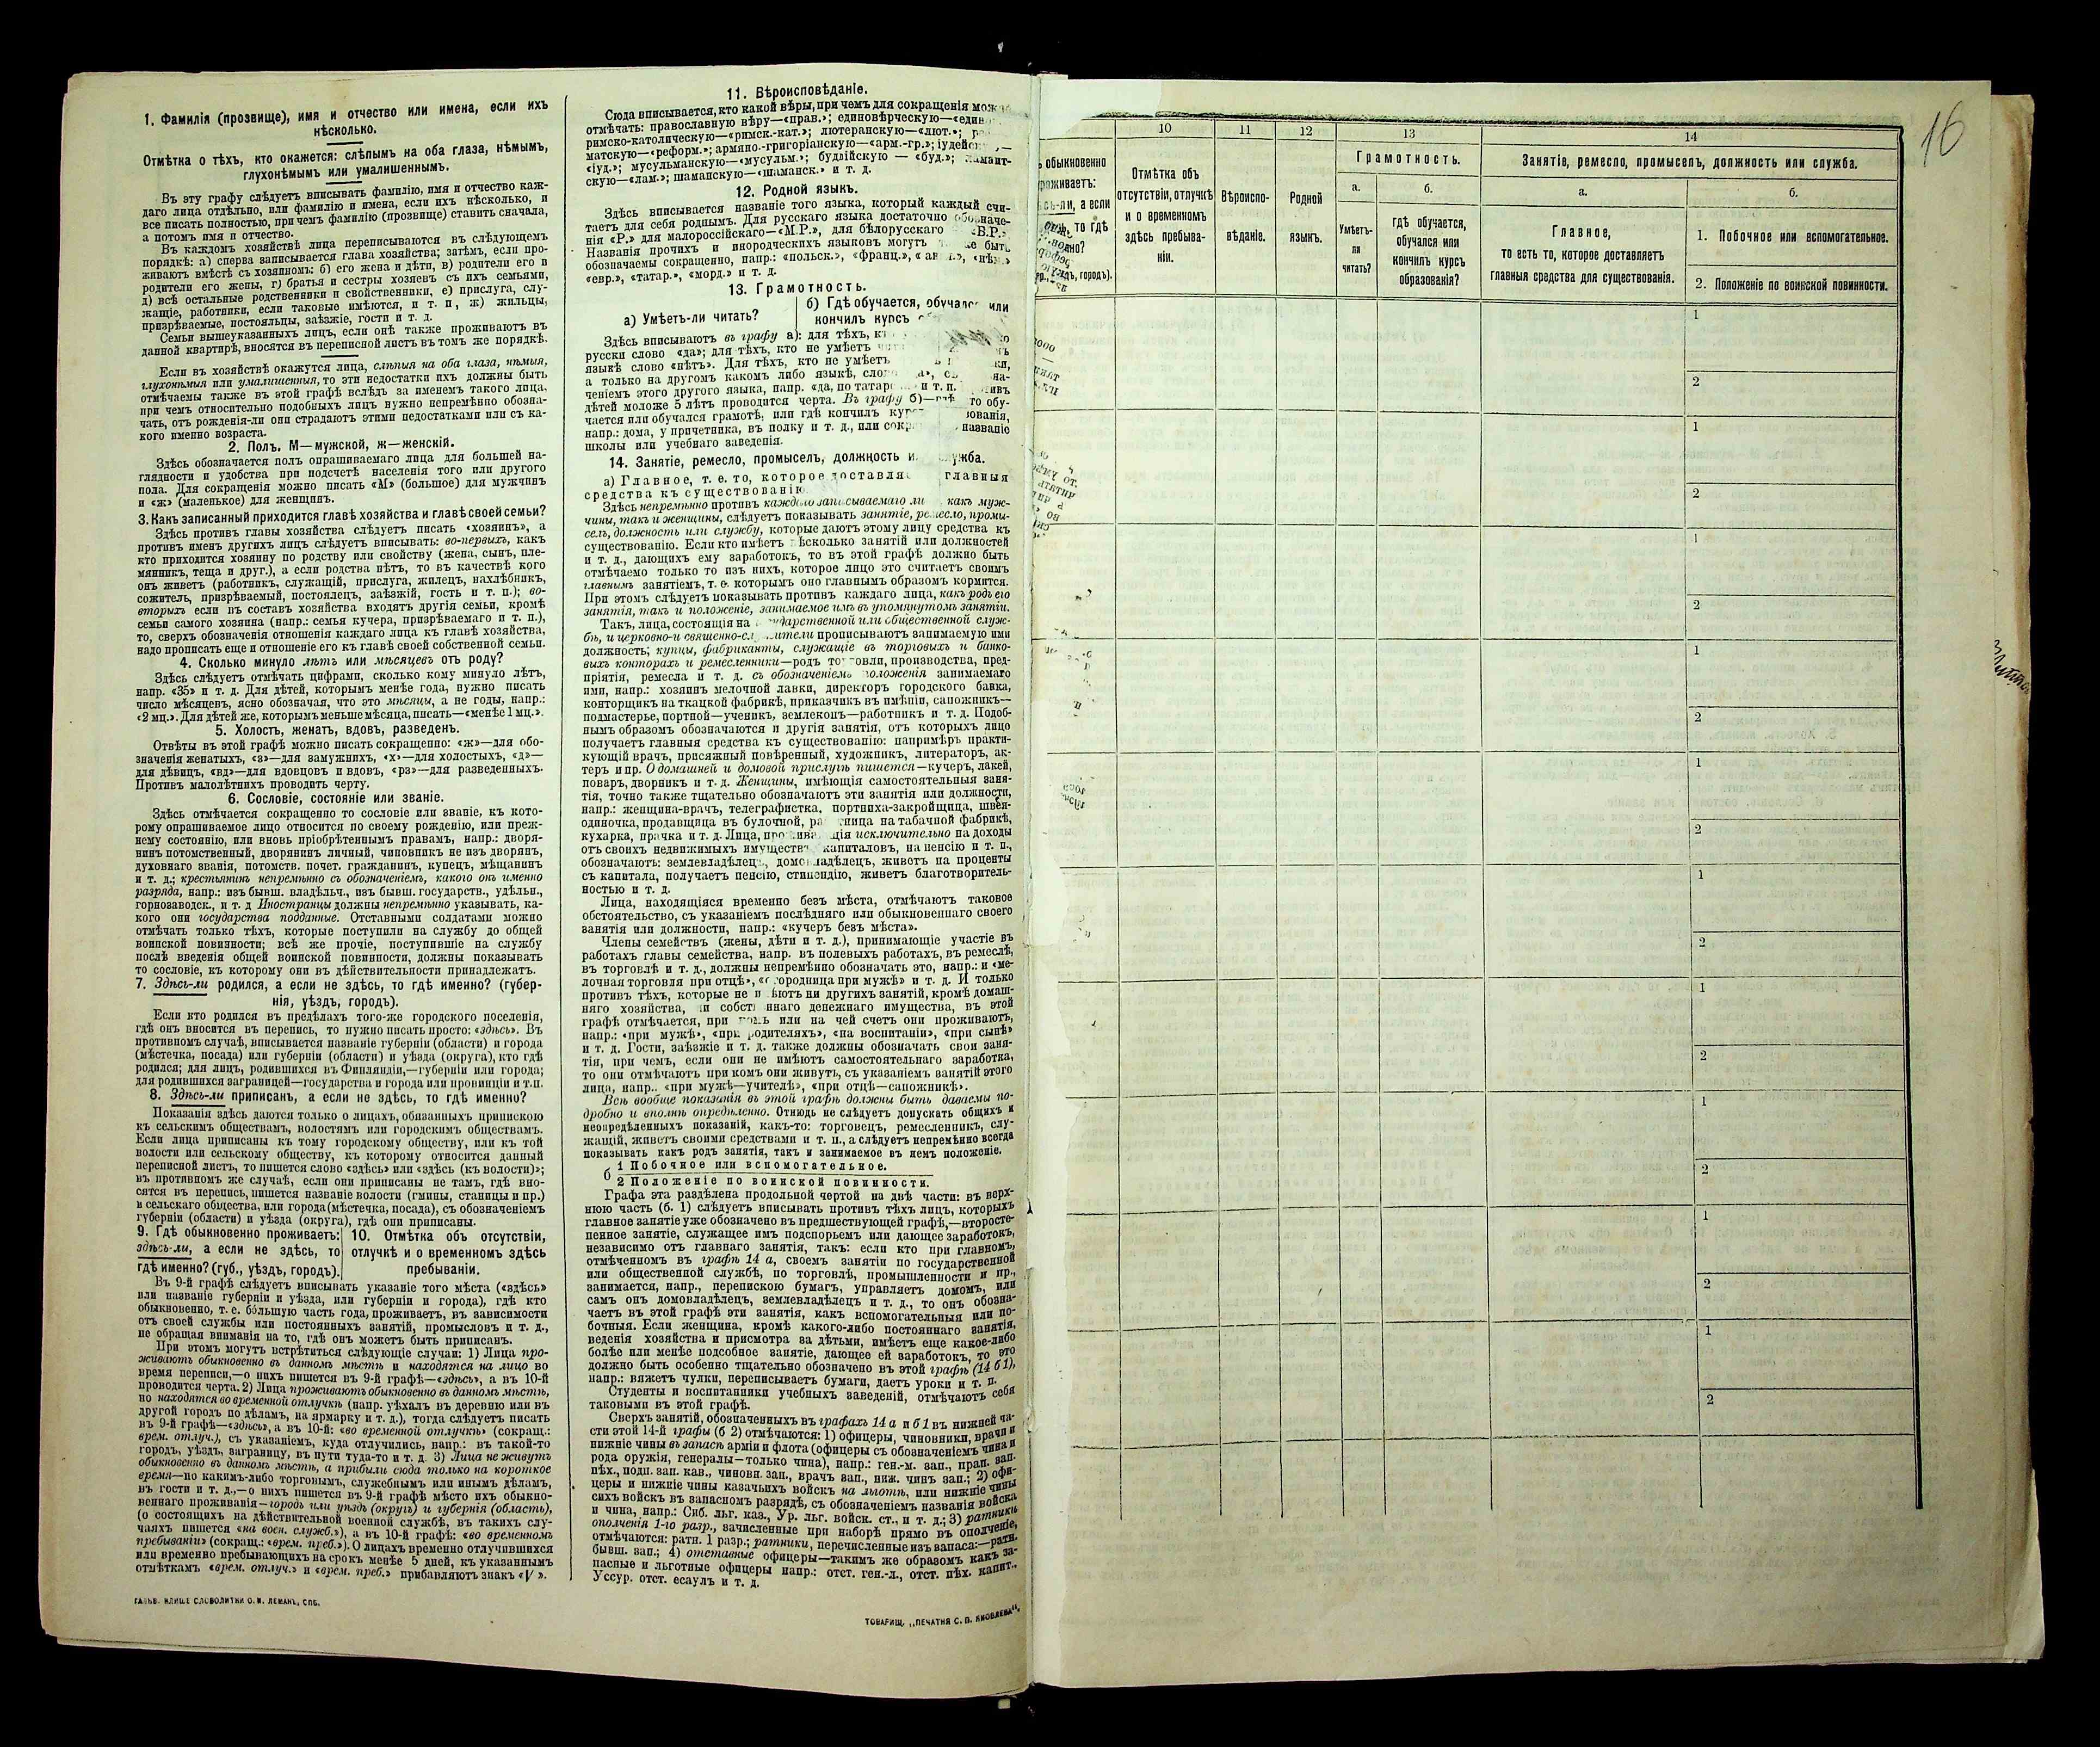 1. Фамилія (прозвище), имя и отчество или имена, если ихъ
нѣсколько.
Отмѣтка о тѣхъ, кто окажется: слѣпымъ на оба глаза, нѣмымъ,
глухонѣмымъ или умалишеннымъ.
Въ эту графу слѣдуетъ вписывать фамилію, имя и отчество каж-
даго лица отдѣльно, или фамилію и имена, если ихъ нѣсколько, и
все писать полностью, при чемъ фамилію (прозвище) ставить сначала,
а потомъ имя и отчество.
Въ каждомъ хозяйствѣ лица переписываются въ слѣдующемъ
порядкѣ: а) сперва записывается глава хозяйства; затѣмъ, если про-
живаютъ вмѣстѣ съ хозяиномъ: б) его жена и дѣти, в) родители его и
родители его жены, г) братья и сестры хозяевъ съ ихъ семьями,
д) всѣ остальные родственники и свойственники, е) прислуга, слу-
жащіе, работники, если таковые имѣются, и т. п, ж) жильцы,
призрѣваемые, постояльцы, заѣзжіе, гости и т. д.
Семьи вышеуказанныхъ лицъ, если онѣ также проживаютъ въ
данной квартирѣ, вносятся въ переписной листъ въ томъ же порядкѣ.
Если въ хозяйствѣ окажутся лица, слѣпыя на оба глаза, нѣмыя,
глухонѣмыя или умалишенныя, то эти недостатки ихъ должны быть
отмѣчаемы также въ этой графѣ вслѣдъ за именемъ такого лица,
при чемъ относительно подобныхъ лицъ нужно непремѣнно обозна-
чать, отъ рожденія-ли они страдаютъ этими недостатками или съ ка-
кого именно возраста.
2. Полъ. М—мужской, ж—женскій.
Здѣсь обозначается полъ опрашиваемаго лица для большей на-
глядности и удобства при подсчетѣ населенія того или другого
пола. Для сокращенія можно писать «М» (большое) для мужчинъ
и «ж» (маленькое) для женщинъ.
3. Какъ записанный приходится главѣ хозяйства и главѣ своей семьи?
Здѣсь противъ главы хозяйства слѣдуетъ писать «хозяинъ», а
противъ именъ другихъ лицъ слѣдуетъ вписывать: во-первыхъ, какъ
кто приходится хозяину по родству или свойству (жена, сынъ, пле-
мянникъ, теща и друг.), а если родства нѣтъ, то въ качествѣ кого
онъ живетъ (работникъ, служащій, прислуга, жилецъ, нахлѣбникъ,
сожитель, призрѣваемый, постоялецъ, заѣзжій, гость и т. п.); во-
вторыхъ если въ составъ хозяйства входятъ другія семьи, кромѣ
семьи самого хозяина (напр.: семья кучера, призрѣваемаго и т. п.),
то, сверхъ обозначенія отношенія каждаго лица къ главѣ хозяйства,
надо прописать еще и отношеніе его къ главѣ своей собственной семьи.
4. Сколько минуло лѣтъ или мѣсяцевъ отъ роду?
Здѣсь слѣдуетъ отмѣчать цифрами, сколько кому минуло лѣтъ,
напр. «35» и т. д. Для дѣтей, которымъ менѣе года, нужно писать
число мѣсяцевъ, ясно обозначая, что это мѣсяцы, а не годы, напр.:
«2 мц.». Для дѣтей же, которымъ меньше мѣсяца, писать—«менѣе 1 мц.».
5. Холостъ, женатъ, вдовъ, разведенъ.
Отвѣты въ этой графѣ можно писать сокращенно: «ж»—для обо-
значенія женатыхъ, «з»—для замужнихъ, «х»—для холостыхъ, «д»—
для дѣвицъ, «вд»—для вдовцовъ и вдовъ, «рз»—для разведенныхъ.
Противъ малолѣтнихъ проводить черту.
6. Сословіе, состояніе или званіе.
Здѣсь отмѣчается сокращенно то сословіе или званіе, къ кото-
рому опрашиваемое лицо относится по своему рожденію, или преж-
нему состоянію, или вновь пріобрѣтеннымъ правамъ, напр.: дворя-
нинъ потомственный, дворянинъ личный, чиновникъ не изъ дворянъ,
духовнаго званія, потомств. почет. гражданинъ, купецъ, мѣщанинъ
и т. д.; крестьянинъ непремѣнно съ обозначеніемъ, какого онъ именно
разряда, напр.: изъ бывш. владѣльч., изъ бывш. государств., удѣльн.,
горнозаводск., и т. д Иностранцы должны непремѣнно указывать, ка-
кого они государства подданные. Отставными солдатами можно
отмѣчать только тѣхъ, которые поступили на службу до общей
воинской повинности; всѣ же прочіе, поступившіе на службу
послѣ введенія общей воинской повинности, должны показывать
то сословіе, къ которому они въ дѣйствительности принадлежатъ.
7. Здѣсь-ли родился, а если не здѣсь, то гдѣ именно? (губер-
нія, уѣздъ, городъ).
Если кто родился въ предѣлахъ того-же городского поселенія,
гдѣ онъ вносится въ перепись, то нужно писать просто: «здѣсь». Въ
противномъ случаѣ, вписывается названіе губерніи (области) и города
(мѣстечка, посада) или губерніи (области) и уѣзда (округа), кто гдѣ
родился; для лицъ, родившихся въ Финляндіи,—губерніи или города;
для родившихся заграницей—государства и города или провинціи и т.п.
8. Здѣсь-ли приписанъ, а если не здѣсь, то гдѣ именно?
Показанія здѣсь даются только о лицахъ, обязанныхъ припискою
къ сельскимъ обществамъ, волостямъ или городскимъ обществамъ.
Если лица приписаны къ тому городскому обществу, или къ той
волости или сельскому обществу, къ которому относится данный
переписной листъ, то пишется слово «здѣсь» или «здѣсь (къ волости)»;
въ противномъ же случаѣ, если они приписаны не тамъ, гдѣ вно-
сятся въ перепись, пишется названіе волости (гмины, станицы и пр.)
и сельскаго общества, или города (мѣстечка, посада), съ обозначеніемъ
губерніи (области) и уѣзда (округа), гдѣ они приписаны.
9. Гдѣ обыкновенно проживаетъ:
здѣсь-ли, а если не здѣсь, то
гдѣ именно? (губ., уѣздъ, городъ).
10. Отмѣтка объ отсутствіи,
отлучкѣ и о временномъ здѣсь
пребываніи.
Въ 9-й графѣ слѣдуетъ вписывать указаніе того мѣста («здѣсь»
или названіе губерніи и уѣзда, или губерніи и города), гдѣ кто
обыкновенно, т. е. бо́льшую часть года, проживаетъ, въ зависимости
отъ своей службы или постоянныхъ занятій, промысловъ и т. д.,
не обращая вниманія на то, гдѣ онъ можетъ быть приписанъ.
При этомъ могутъ встрѣтиться слѣдующіе случаи: 1) Лица про-
живаютъ обыкновенно въ данномъ мѣстѣ и находятся на лицо во
время переписи,—о нихъ пишется въ 9-й графѣ—«здѣсь», а въ 10-й
проводится черта. 2) Лица проживаютъ обыкновенно въ данномъ мѣстѣ,
но находятся во временной отлучкѣ (напр. уѣхалъ въ деревню или въ
другой городъ по дѣламъ, на ярмарку и т. д.), тогда слѣдуетъ писать
въ 9-й графѣ—«здѣсь», а въ 10-й: «во временной отлучкѣ» (сокращ.:
врем. отлуч.), съ указаніемъ, куда отлучились, напр.: въ такой-то
городъ, уѣздъ, заграницу, въ пути туда-то и т. д. 3) Лица не живутъ
обыкновенно въ данномъ мѣстѣ, а прибыли сюда только на короткое
время—по какимъ-либо торговымъ, служебнымъ или инымъ дѣламъ,
въ гости и т. д.,—о нихъ пишется въ 9-й графѣ мѣсто ихъ обыкно-
веннаго проживанія—городъ или уѣздъ (округъ) и губернія (область),
(о состоящихъ на дѣйствительной военной службѣ, въ такихъ слу-
чаяхъ пишется «на воен. служб.»), а въ 10-й графѣ: «во временномъ
пребываніи» (сокращ.: «врем. преб.»). О лицахъ временно отлучившихся
или временно пребывающихъ на срокъ менѣе 5 дней, къ указаннымъ
отмѣткамъ «врем. отлуч.» и «врем. преб.» прибавляютъ знакъ «V».
ГАЛЬВ. КЛИШЕ СЛОВОЛИТНИ О. И. ЛЕМАНЪ, СПБ.
11. Вѣроисповѣданіе.
Сюда вписывается, кто какой вѣры, при чемъ для сокращенія
отмѣчать: православную вѣру—«прав.»; единовѣрческую—«един
римско-католическую—«римск.-кат.»; лютеранскую—«лют.»;
матскую—«реформ.»; армяно-григоріанскую—«арм.-гр.»;
«іуд.»; мусульманскую—«мусульм.»; буддійскую — «буд.»; ламаит-
скую—«лам.»; шаманскую—«шаманск.» и т. д.
12. Родной языкъ.
Здѣсь вписывается названіе того языка, который каждый счи-
таетъ для себя роднымъ. Для русскаго языка достаточно обозначе-
нія «Р.» для малороссійскаго—«М.Р.», для бѣлорусскаго «Б.Р.»
Названія прочихъ и инородческихъ языковъ могутъ быть
обозначаемы сокращенно, напр.: «польск.», «франц.»,
«евр.», «татар.», «морд.» и т. д.
13. Грамотность.
а) Умѣетъ-ли читать?
б) Гдѣ обучается, обучался или
кончилъ курсъ
Здѣсь вписываютъ въ графу а): для тѣхъ,
русски слово «да»; для тѣхъ, кто не умѣетъ
языкѣ слово «нѣтъ». Для тѣхъ, кто не умѣетъ
а только на другомъ какомъ либо языкѣ,
ченіемъ этого другого языка, напр. «да, по татарс и т. п.
дѣтей моложе 5 лѣтъ проводится черта. Въ графу б)— го обу-
чается или обучался грамотѣ, или гдѣ кончилъ
напр.: дома, у причетника, въ полку и т. д., или названіе
школы или учебнаго заведенія.
14. Занятіе, ремесло, промыселъ, должность
а) Главное, т. е. то, которое главныя
средства къ существованію
Здѣсь непремѣнно противъ каждаго записываемаго какъ муж-
чины, такъ и женщины, слѣдуетъ показывать занятіе, ремесло, промы-
селъ, должность или службу, которые даютъ этому лицу средства къ
существованію. Если кто имѣетъ нѣсколько занятій или должностей
и т. д., дающихъ ему заработокъ, то въ этой графѣ должно быть
отмѣчаемо только то изъ нихъ, которое лицо это считаетъ своимъ
главнымъ занятіемъ, т. е. которымъ оно главнымъ образомъ кормится.
При этомъ слѣдуетъ показывать противъ каждаго лица, какъ родъ его
занятія, такъ и положеніе, занимаемое имъ въ упомянутомъ занятіи.
Такъ, лица, состоящія на государственной или общественной служ-
бѣ, и церковно-и священно-служители прописываютъ занимаемую ими
должность; купцы, фабриканты, служащіе въ торговыхъ и банко-
выхъ конторахъ и ремесленники—родъ торговли, производства, пред-
пріятія, ремесла и т. д. съ обозначеніемъ положенія занимаемаго
ими, напр.: хозяинъ мелочной лавки, директоръ городского банка,
конторщикъ на ткацкой фабрикѣ, приказчикъ въ имѣніи, сапожникъ—
подмастерье, портной—ученикъ, землекопъ—работникъ и т. д. Подоб-
нымъ образомъ обозначаются и другія занятія, отъ которыхъ лицо
получаетъ главныя средства къ существованію: напримѣръ практи-
кующій врачъ, присяжный повѣренный, художникъ, литераторъ, ак-
теръ и пр. О домашней и домовой прислугѣ пишется—кучеръ, лакей,
поваръ, дворникъ и т. д. Женщины, имѣющія самостоятельныя заня-
тія, точно также тщательно обозначаютъ эти занятія или должности,
напр.: женщина-врачъ, телеграфистка, портниха-закройщица, швея-
одиночка, продавщица въ булочной, работница на табачной фабрикѣ,
кухарка, прачка и т. д. Лица, проживающія исключительно на доходы
отъ своихъ недвижимыхъ имуществъ, капиталовъ, на пенсію и т. п.,
обозначаютъ: землевладѣлецъ, домовладѣлецъ, живетъ на проценты
съ капитала, получаетъ пенсію, стипендію, живетъ благотворитель-
ностью и т. д.
Лица, находящіяся временно безъ мѣста, отмѣчаютъ таковое
обстоятельство, съ указаніемъ послѣдняго или обыкновеннаго своего
занятія или должности, напр.: «кучеръ безъ мѣста».
Члены семействъ (жены, дѣти и т. д.), принимающіе участіе въ
работахъ главы семейства, напр. въ полевыхъ работахъ, въ ремеслѣ,
въ торговлѣ и т. д., должны непремѣнно обозначать это, напр.: и «ме-
лочная торговля при отцѣ», «огородница при мужѣ» и т. д. И только
противъ тѣхъ, которые не имѣютъ ни другихъ занятій, кромѣ домаш-
няго хозяйства, ни собственнаго денежнаго имущества, въ этой
графѣ отмѣчается, при комъ или на чей счетъ они проживаютъ,
напр.: «при мужѣ», «при родителяхъ», «на воспитаніи», «при сынѣ»
и т. д. Гости, заѣзжіе и т. д. также должны обозначать свои заня-
тія, при чемъ, если они не имѣютъ самостоятельнаго заработка,
то они отмѣчаютъ при комъ они живутъ, съ указаніемъ занятій этого
лица, напр.. «при мужѣ—учителѣ», «при отцѣ—сапожникѣ».
Всѣ вообще показанія въ этой графѣ должны быть даваемы по-
дробно и вполнѣ опредѣленно. Отнюдь не слѣдуетъ допускать общихъ и
неопредѣленныхъ показаній, какъ-то: торговецъ, ремесленникъ, слу-
жащій, живетъ своими средствами и т. п., а слѣдуетъ непремѣнно всегда
показывать какъ родъ занятія, такъ и занимаемое въ немъ положеніе.
б
1 Побочное или вспомогательное.
2 Положеніе по воинской повинности.
Графа эта раздѣлена продольной чертой на двѣ части: въ верх-
нюю часть (б. 1) слѣдуетъ вписывать противъ тѣхъ лицъ, которыхъ
главное занятіе уже обозначено въ предшествующей графѣ,—второсте-
пенное занятіе, служащее имъ подспорьемъ или дающее заработокъ,
независимо отъ главнаго занятія, такъ: если кто при главномъ,
отмѣченномъ въ графѣ 14 а, своемъ занятіи по государственной
или общественной службѣ, по торговлѣ, промышленности и пр.,
занимается, напр., перепискою бумагъ, управляетъ домомъ, или
самъ онъ домовладѣлецъ, землевладѣлецъ и т. д., то онъ обозна-
чаетъ въ этой графѣ эти занятія, какъ вспомогательныя или по-
бочныя. Если женщина, кромѣ какого-либо постояннаго занятія,
веденія хозяйства и присмотра за дѣтьми, имѣетъ еще какое-либо
болѣе или менѣе подсобное занятіе, дающее ей заработокъ, то это
должно быть особенно тщательно обозначено въ этой графѣ (14 б 1),
напр.: вяжетъ чулки, переписываетъ бумаги, даетъ уроки и т. п.
Студенты и воспитанники учебныхъ заведеній, отмѣчаютъ себя
таковыми въ этой графѣ.
Сверхъ занятій, обозначенныхъ въ графахъ 14 а и б 1 въ нижней ча-
сти этой 14-й графы (б 2) отмѣчаются: 1) офицеры, чиновники, врачи и
нижніе чины въ запасѣ арміи и флота (офицеры съ обозначеніемъ чина и
рода оружія, генералы—только чина), напр.: ген.-м. зап., прап. зап.
пѣх., подп. зап. кав., чиновн. зап., врачъ зап., ниж. чинъ зап.; 2) офи-
церы и нижніе чины казачьихъ войскъ на льготѣ, или нижніе чины
сихъ войскъ въ запасномъ разрядѣ, съ обозначеніемъ названія войска
и чина, напр.: Сиб. льг. каз., Ур. льг. войск. ст., и т. д.; 3) ратники
ополченія 1-го разр., зачисленные при наборѣ прямо въ ополченіе,
отмѣчаются: ратн. 1 разр.; ратники, перечисленные изъ запаса:—ратн.
бывш. зап.; 4) отставные офицеры—такимъ же образомъ какъ за-
пасные и льготные офицеры напр.: отст. ген.-л., отст. пѣх. капит.,
Уссур. отст. есаулъ и т. д.
ТОВАРИЩ. „ПЕЧАТНЯ С. П. ЯКОВЛЕВА“.
16
обыкновенно
а если
то гдѣ
городъ).
10
Отмѣтка объ
отсутствіи, отлучкѣ
и о временномъ
здѣсь пребыва-
ніи.
11
Вѣроиспо-
вѣданіе.
12
Родной
языкъ.
13
Грамотность.
а.
Умѣетъ-
ли
читать?
б.
Гдѣ обучается,
обучался или
кончилъ курсъ
образованія?
14
Занятіе, ремесло, промыселъ, должность или служба.
а.
Главное,
то есть то, которое доставляетъ
главныя средства для существованія.
б.
1. Побочное или вспомогательное.
2. Положеніе по воинской повинности.
1
2
1
2
1
2
1
2
1
2
1
2
1
2
1
2
1
2
1
2